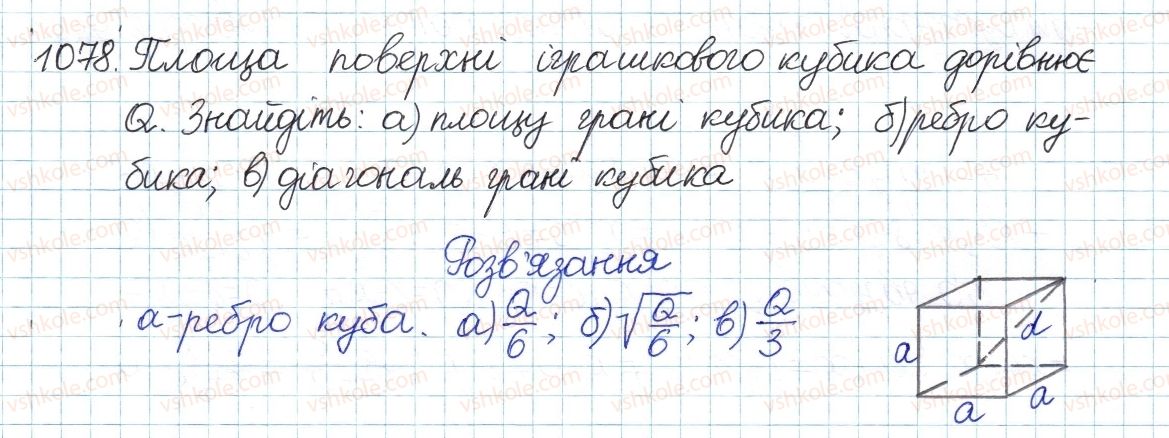 1078. Площа поверхні іграшкового кубика дорівнює
Q. Знайдіть: а) площу грані кубика; б) ребро ку-
бика; в) діагональ грані кубика
Розв'язання
а-ребро куба. а) Q/6; б) √(Q/6); в) Q/3
a
d
a
a
vshkole.com